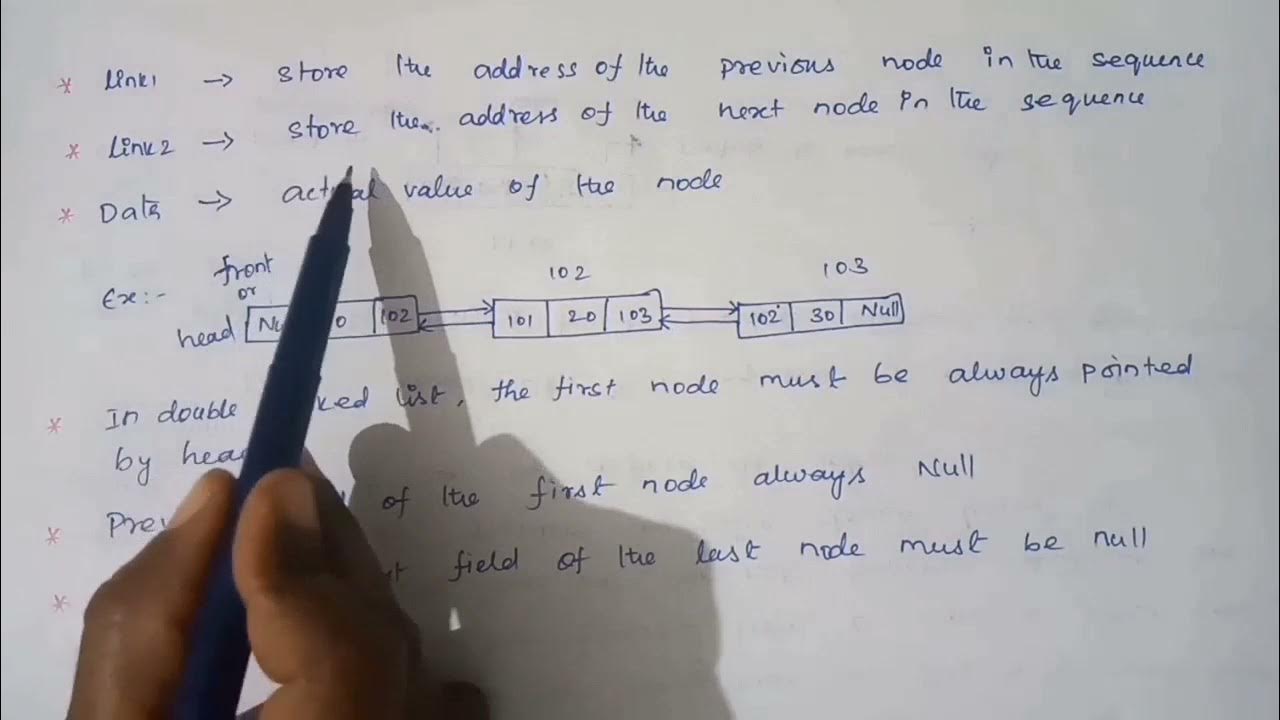 * Link1 → store the address of the previous node in the sequence
* Link2 → store the address of the next node in the sequence
* Data → actual value of the node
front 102 103
Ex:- or
head 102 101 20 103 102 30 Null
* In double list, the first node must be always pointed
by
* of the first node always Null
* field of the last node must be null